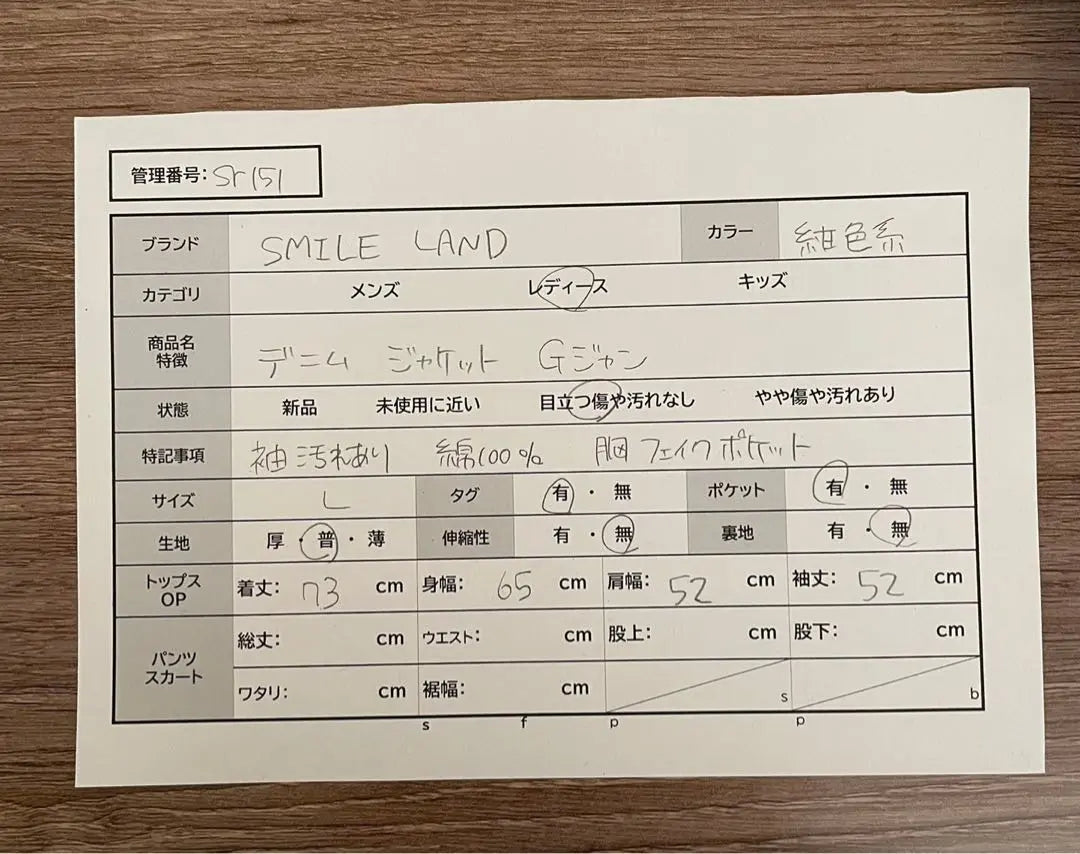 管理番号: Sr151
ブランド SMILE LAND カラー 紺色系
カテゴリ メンズ レディース キッズ
商品名 特徴 デニム ジャケット Gジャン
状態 新品 未使用に近い 目立つ傷や汚れなし やや傷や汚れあり
特記事項 袖汚れあり 綿100% 胸フェイクポケット
サイズ L タグ 有・無 ポケット 有・無
生地 厚・普・薄 伸縮性 有・無 裏地 有・無
トップス OP 着丈: 73 cm 身幅: 65 cm 肩幅: 52 cm 袖丈: 52 cm
パンツ スカート 総丈: cm ウエスト: cm 股上: cm 股下: cm
ワタリ: cm 裾幅: cm s b
s f p p